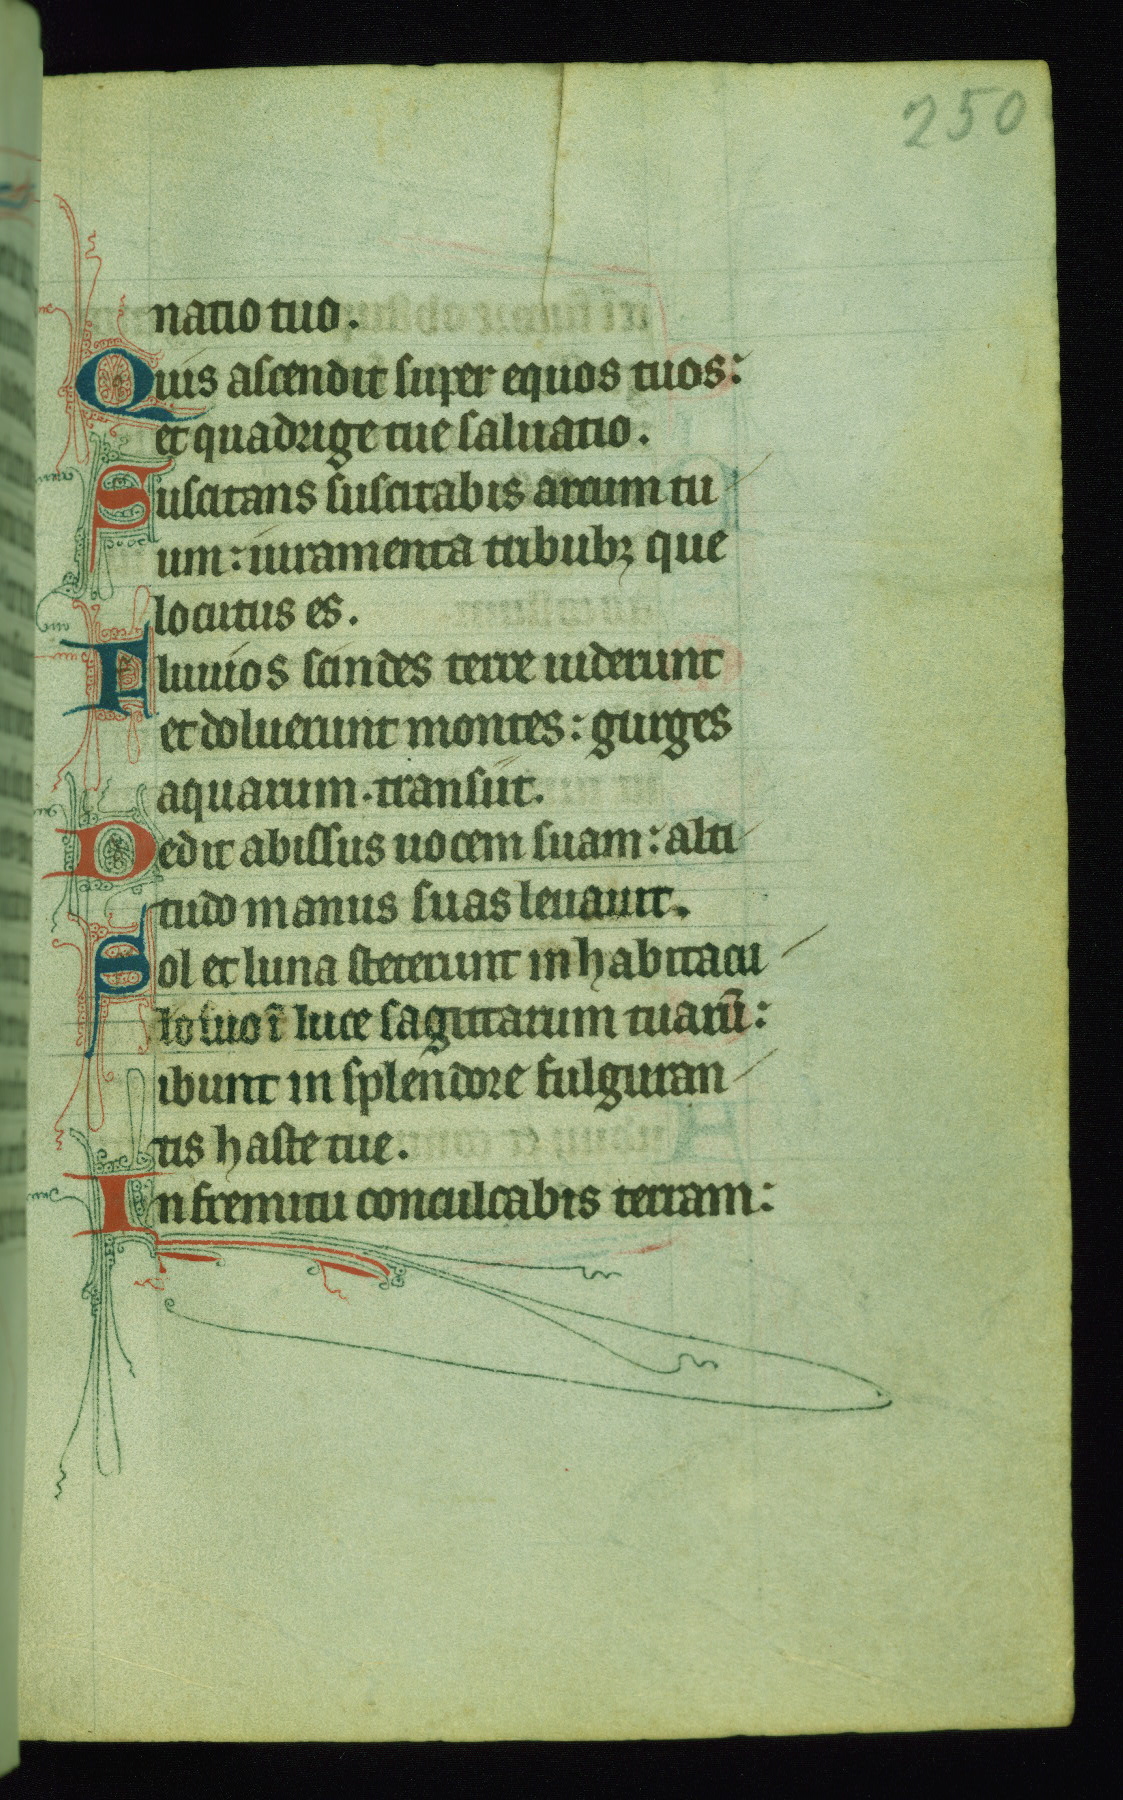 250
natio tuo.
Quis ascendit super equos tuos:
et quadrige tue saluatio.
Suscitans suscitabis arcum tu
um: iuramenta tribubꝫ que
locutus es.
Fluuios scindes terre uiderunt
et doluerunt montes: gurges
aquarum. transiit.
Dedit abissus uocem suam: alti
tudo manus suas leuauit.
Sol et luna steterunt in habitacu
lo suo ī luce sagittarum tuarū:
ibunt in splendore fulguran
tis haste tue.
In fremitu conculcabis terram: